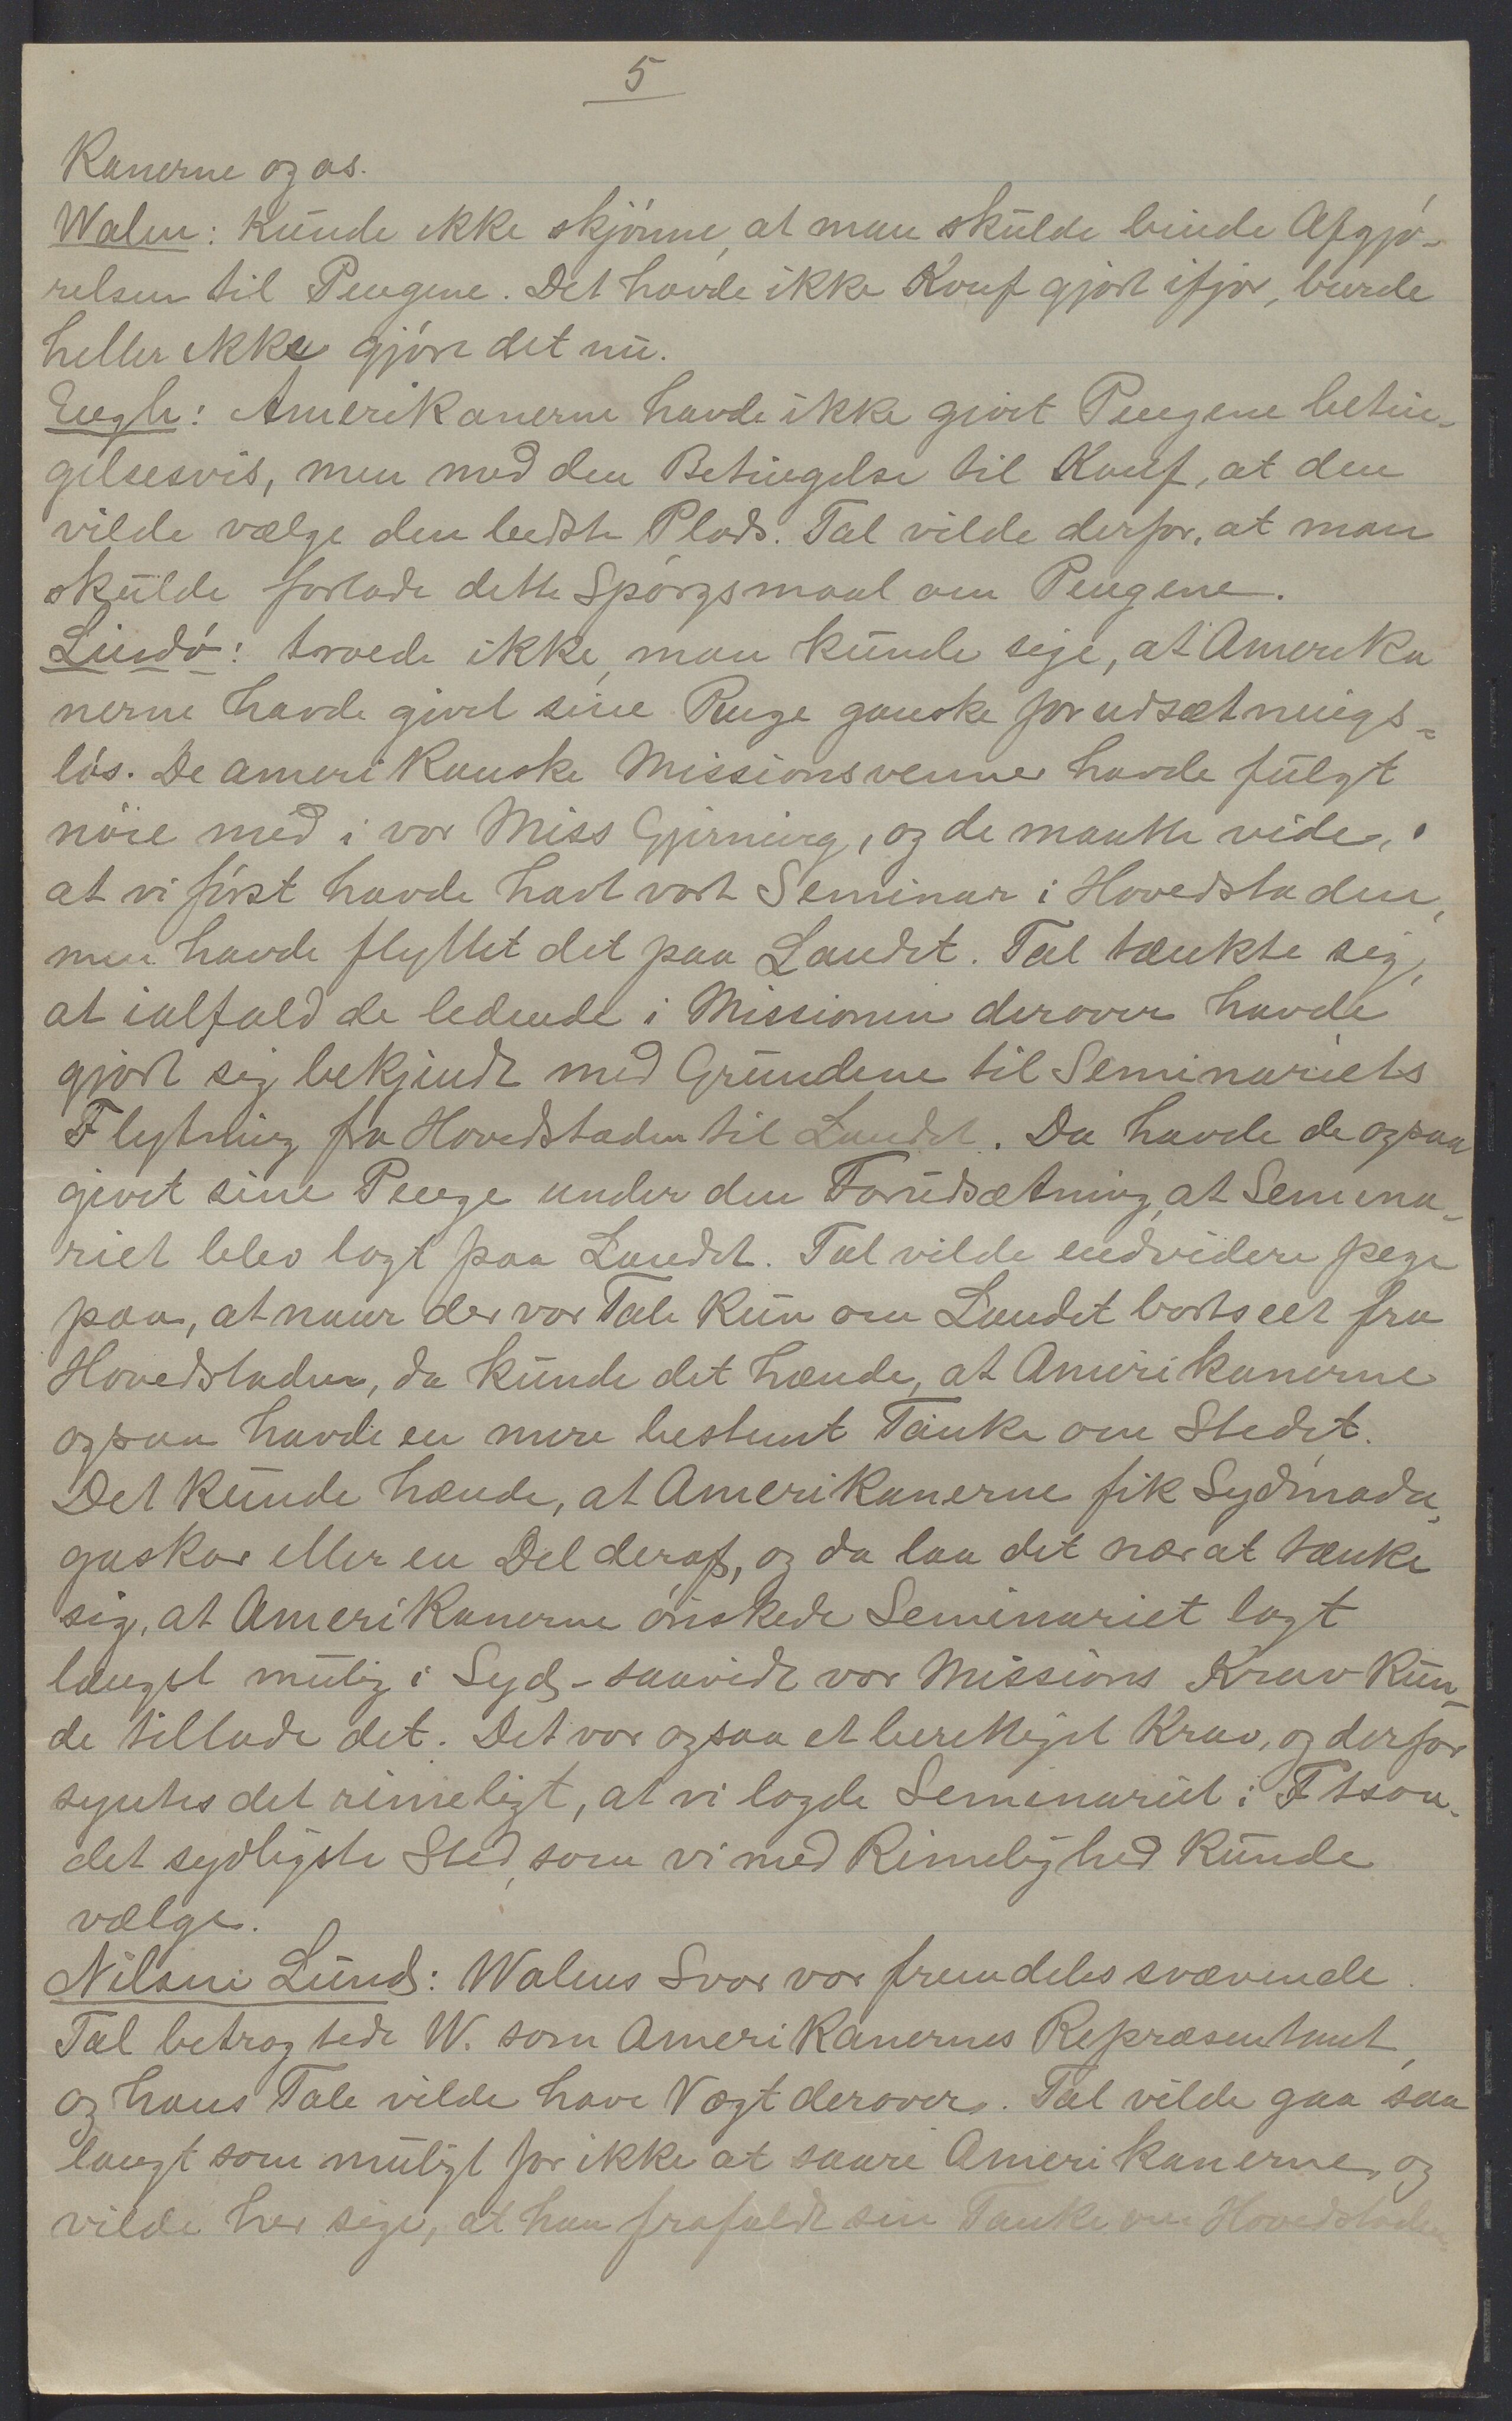 5
kanerne og os.
Walen: kunde ikke skjönne, at man skulde binde Afgjö-
relsen til Pengene. Det havde ikke Konf gjort ifjor, burde
heller ikke gjöre det nu.
Engh: Amerikanerne havde ikke givet Pengene betin-
gelsesvis, men med den Betingelse til Konf, at den
vilde vælge den bedste Plads. Tal vilde derfor, at man
skulde forlade dette Spörgsmaal om Pengene.
Lindö: troede ikke, man kunde sige, at Amerika
nerne havde givet sine Penge ganske forudsætnings-
lös. De amerikanske Missionsvenner havde fulgt
nöie med i vor Miss Gjerning, og de maatte vide,
at vi först havde havt vort Seminar i Hovedstaden,
men havde flyttet det paa Landet. Tal tænkte sig,
at ialfald de ledende i Missionen derover havde
gjort sig bekjendt med Grundene til Seminariets
Flytning fra Hovedstaden til Landet. Da havde de ogsaa
givet sine Penge under den Forudsætning, at Semina-
riet blev lagt paa Landet. Tal vilde endvidere pege
paa, at naar der var Tale kun om Landet bortseet fra
Hovedstaden, da kunde det hænde, at Amerikanerne
ogsaa havde en mere bestemt Tanke om Stedet.
Det kunde hænde, at Amerikanerne fik Sydmada-
gaskar eller en Del deraf, og da laa det nær at tænke
sig, at Amerikanerne önskede Seminariet lagt
længst mulig i Syd, - saavidt vor Missions Krav kun-
de tillade det. Det var ogsaa et berettiget Krav, og derfor
syntes det rimeligt, at vi lagde Seminariet i Ftsoa-
det sydligste Sted, som vi med Rimelighed kunde
vælge.
Nilsen Lund: Walens Svar var fremdeles svævende.
Tal betragtede W. som Amerikanernes Repræsentant,
og hans Tale vilde have Vægt derover. Tal vilde gaa saa
langt som muligt for ikke at saare Amerikanerne, og
vilde her sige, at han frafaldt sin Tanke om Hovedstaden